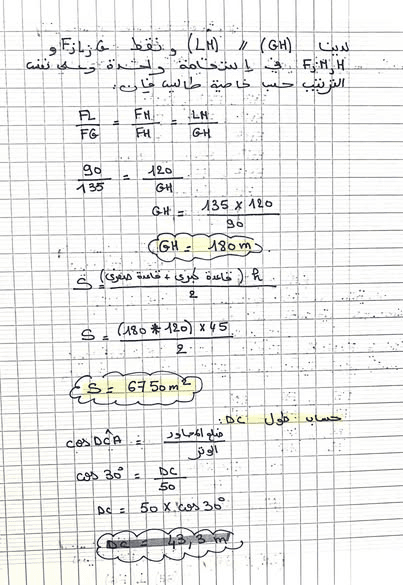 لدينا (GH) // (LM) و نقط G ز L ز F و
F ز M ز H في إستقامة واحدة وعلى نفس
الترتيب حسب خاصة طاليس فإن:
FL/FG = FM/FH = LM/GH
90/135 = 120/GH
GH = 135 × 120 / 90
GH = 180 m
S = (قاعدة كبرى + قاعدة صغرى) h / 2
S = (180 * 120) × 45 / 2
S = 6750 m²
حساب طول DC:
cos DĈA = ضلع المجاور / الوتر
cos 30° = DC / 50
DC = 50 × cos 30°
DC = 43,3 m